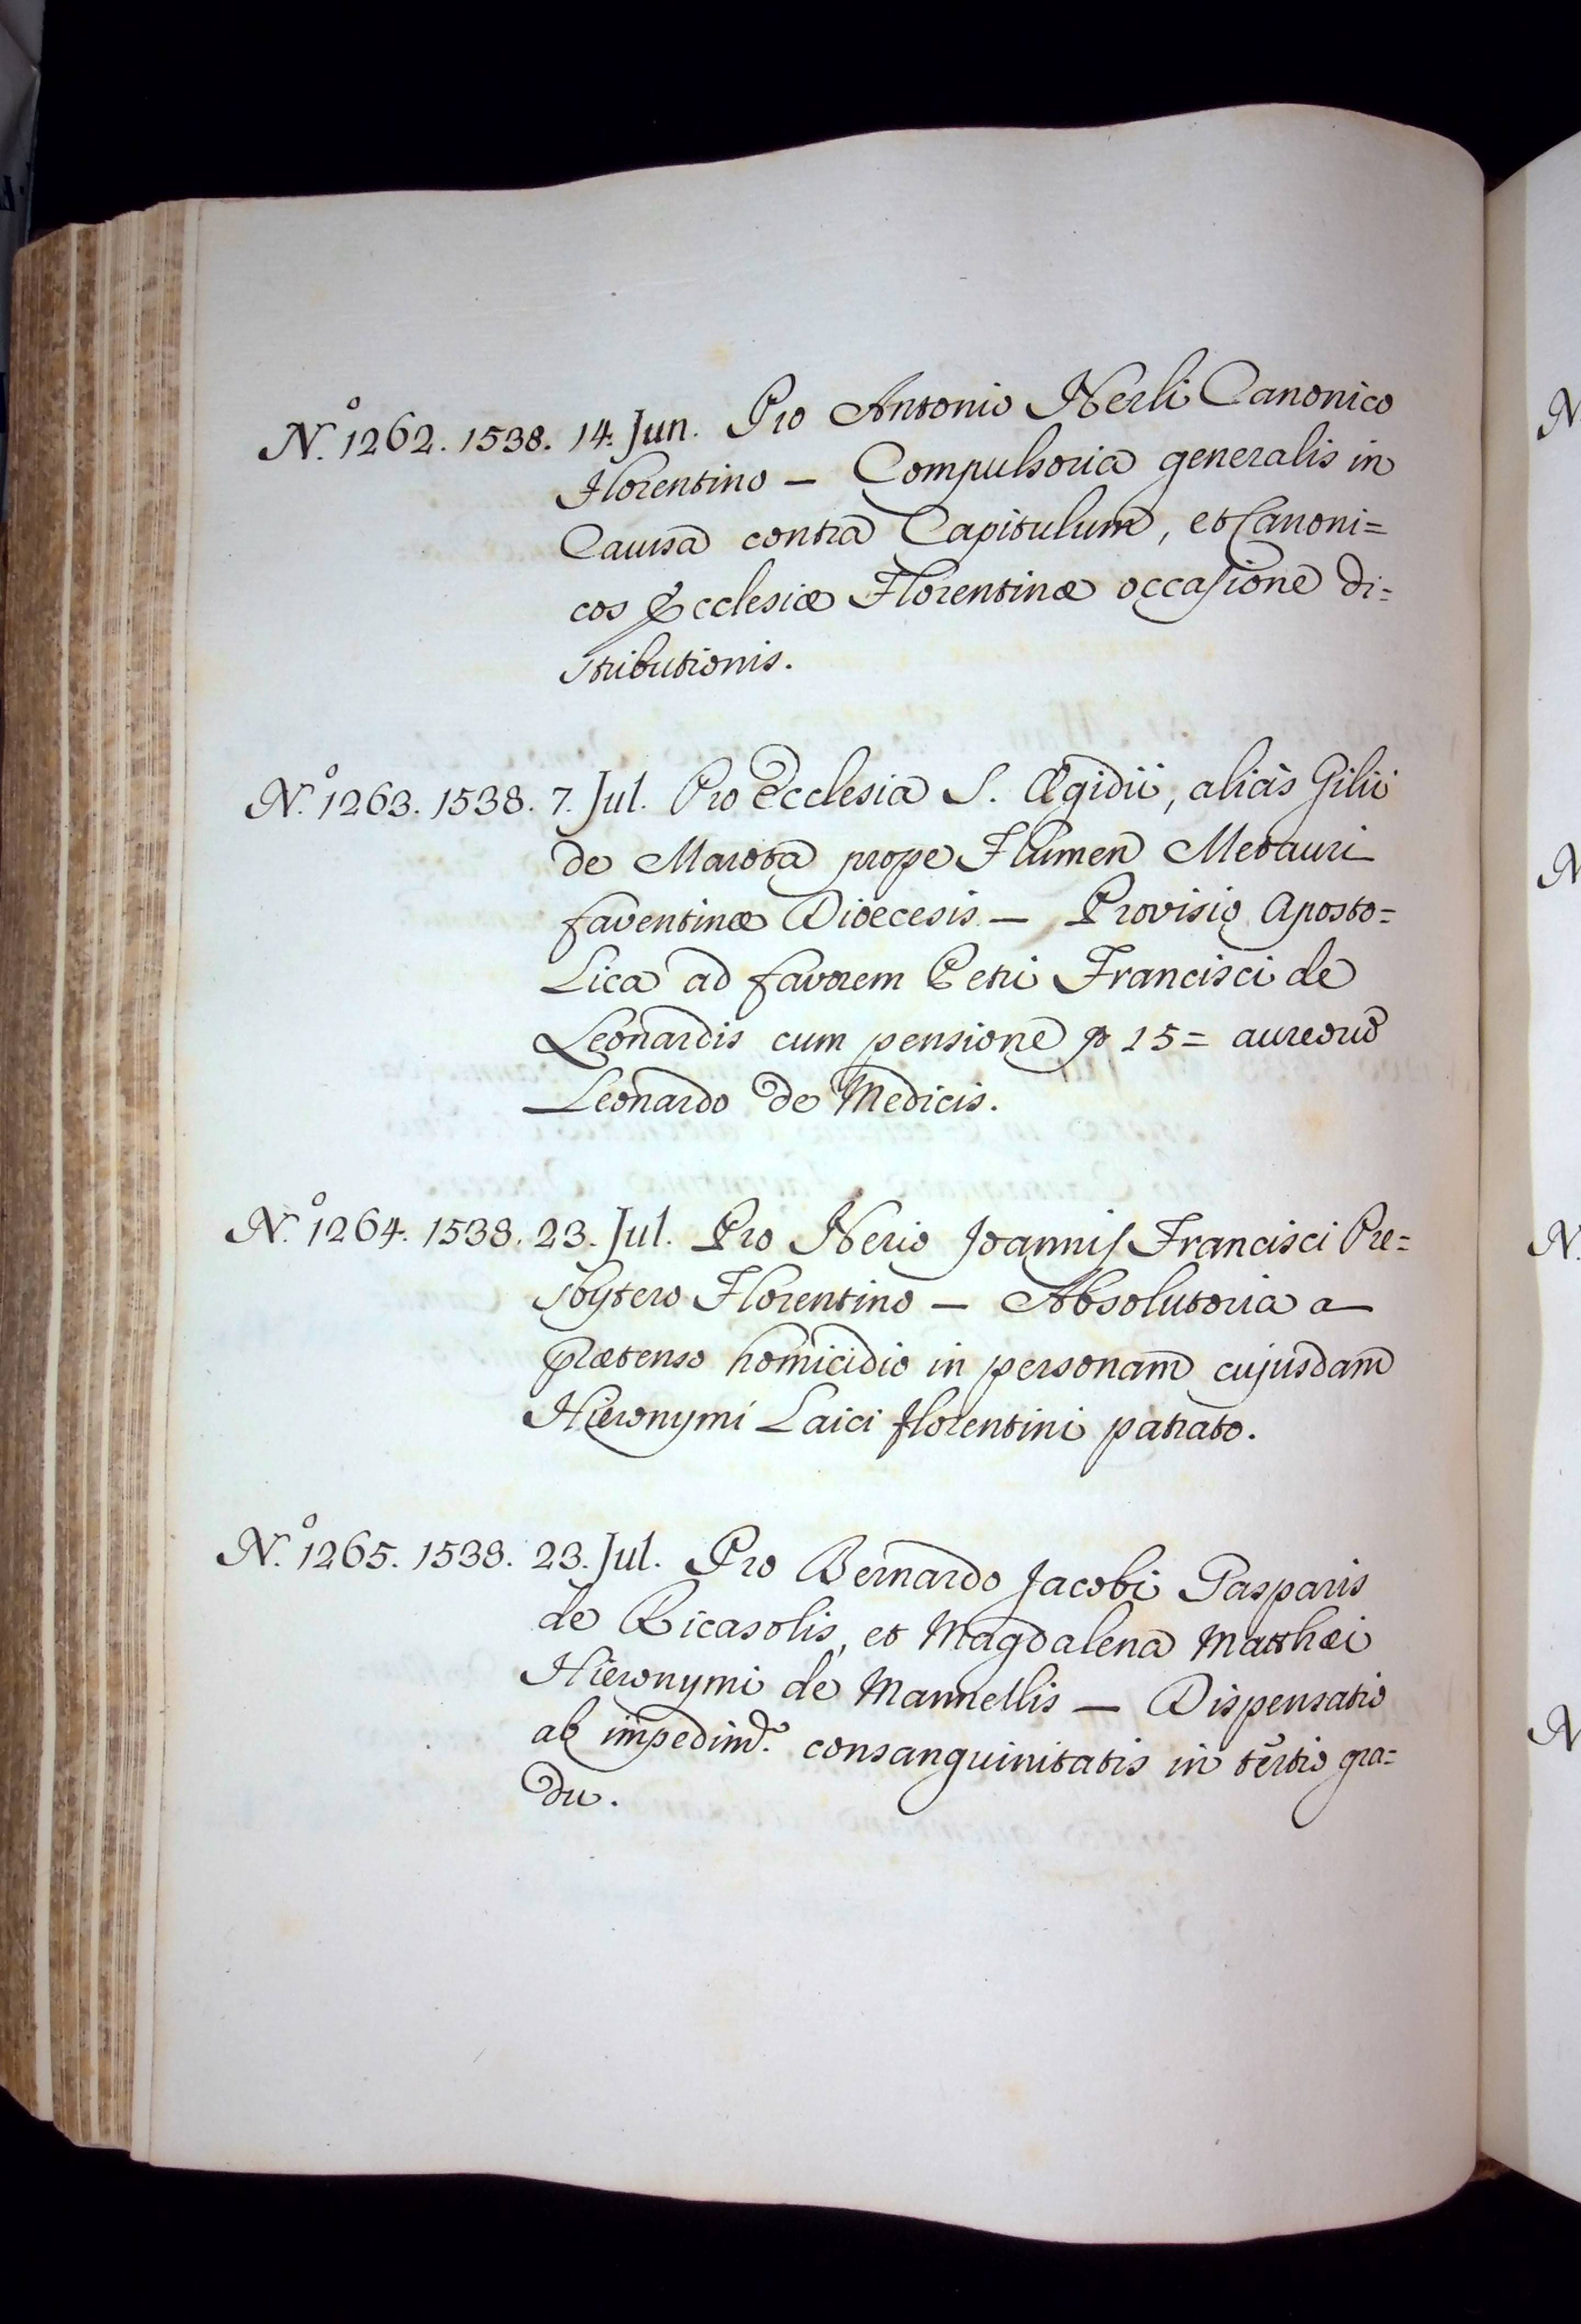 N.º 1262. 1538. 14. Jun. Pro Antonio Nerli Canonico
Florentino — Compulsoria generalis in
Causa contra Capitulum, et Canoni=
cos Ecclesiæ Florentinæ occasione di=
stributionis.
N.º 1263. 1538. 7. Jul. Pro Ecclesia S. Ægidii, aliàs Gilii
de Marota prope Flumen Metauri
faventinæ Dioecesis — Provisio Aposto=
lica ad favorem Petri Francisci de
Leonardis cum pensione p 15= aureorũ
Leonardo de Medicis.
N.º 1264. 1538. 23. Jul. Pro Nerio Joannis Francisci Pre=
sbytero Florentino — Absolutoria a
prætenso homicidio in personam cujusdam
Hieronymi Laici florentini patrato.
N.º 1265. 1538. 23. Jul. Pro Bernardo Jacobi Gasparis
de Ricasolis, et Magdalena Matthæi
Hieronymi de Mannellis — Dispensatio
ab impedim.º consanguinitatis in tertio gra=
du.
N
N
N.
N